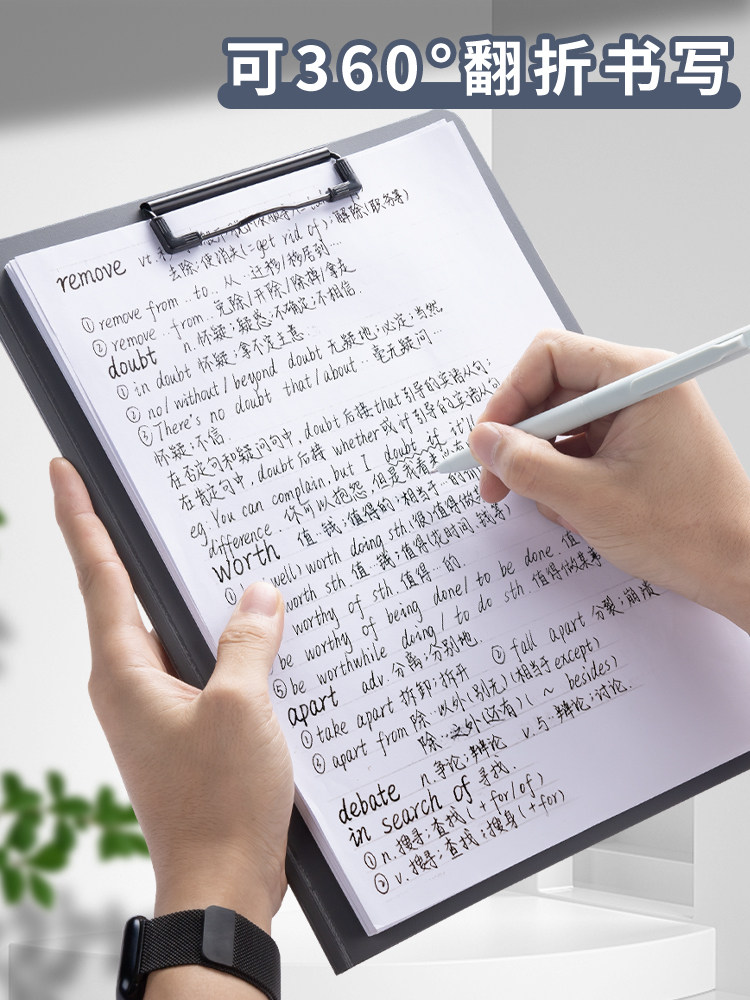 可360°翻折书写
去除;使消失(=get rid of);解除(职务等)
remove vt.
① remove from..to.. 从…迁移/移居到…
② remove..from..免除/开除/除掉/拿走
doubt n.怀疑;疑惑;不确定;不相信.
怀疑;拿不定主意
① in doubt
② no/without/beyond doubt 无疑地;必定;当然
③ There's no doubt that/about… 毫无疑问…
怀疑;不信.
在否定句和疑问句中,doubt后接that引导的宾语从句;
在肯定句中,doubt后接 whether或if引导的宾语从句
eg: You can complain, but I doubt if it'll
difference. 你可以抱怨,但是我看
worth 值…钱;值得的;相当于…的
① well) worth doing sth.(很)值得做
worth sth 值…钱;值得(花时间、钱等)
worthy of sth. 值得…的.
be worthy of being done/ to be done. 值
⑤ be worthwhile doing/ to do sth. 值得做某事
apart adv. 分离;分别地. ② fall apart 分裂;崩溃
① take apart 拆卸;拆开
apart from 除…以外(别无)(相当于except)
除…之外(还有)( ~ besides)
debate n.争论;辩论 v.与…辩论;讨论.
in search of 寻找.
① n.搜寻;查找(+for/of)
② v.搜寻;查找;搜身(+for)